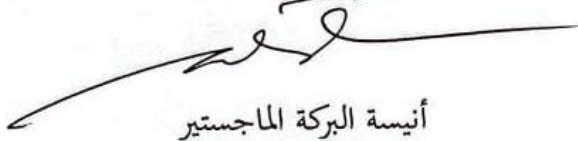 أنيسة البركة الماجستير